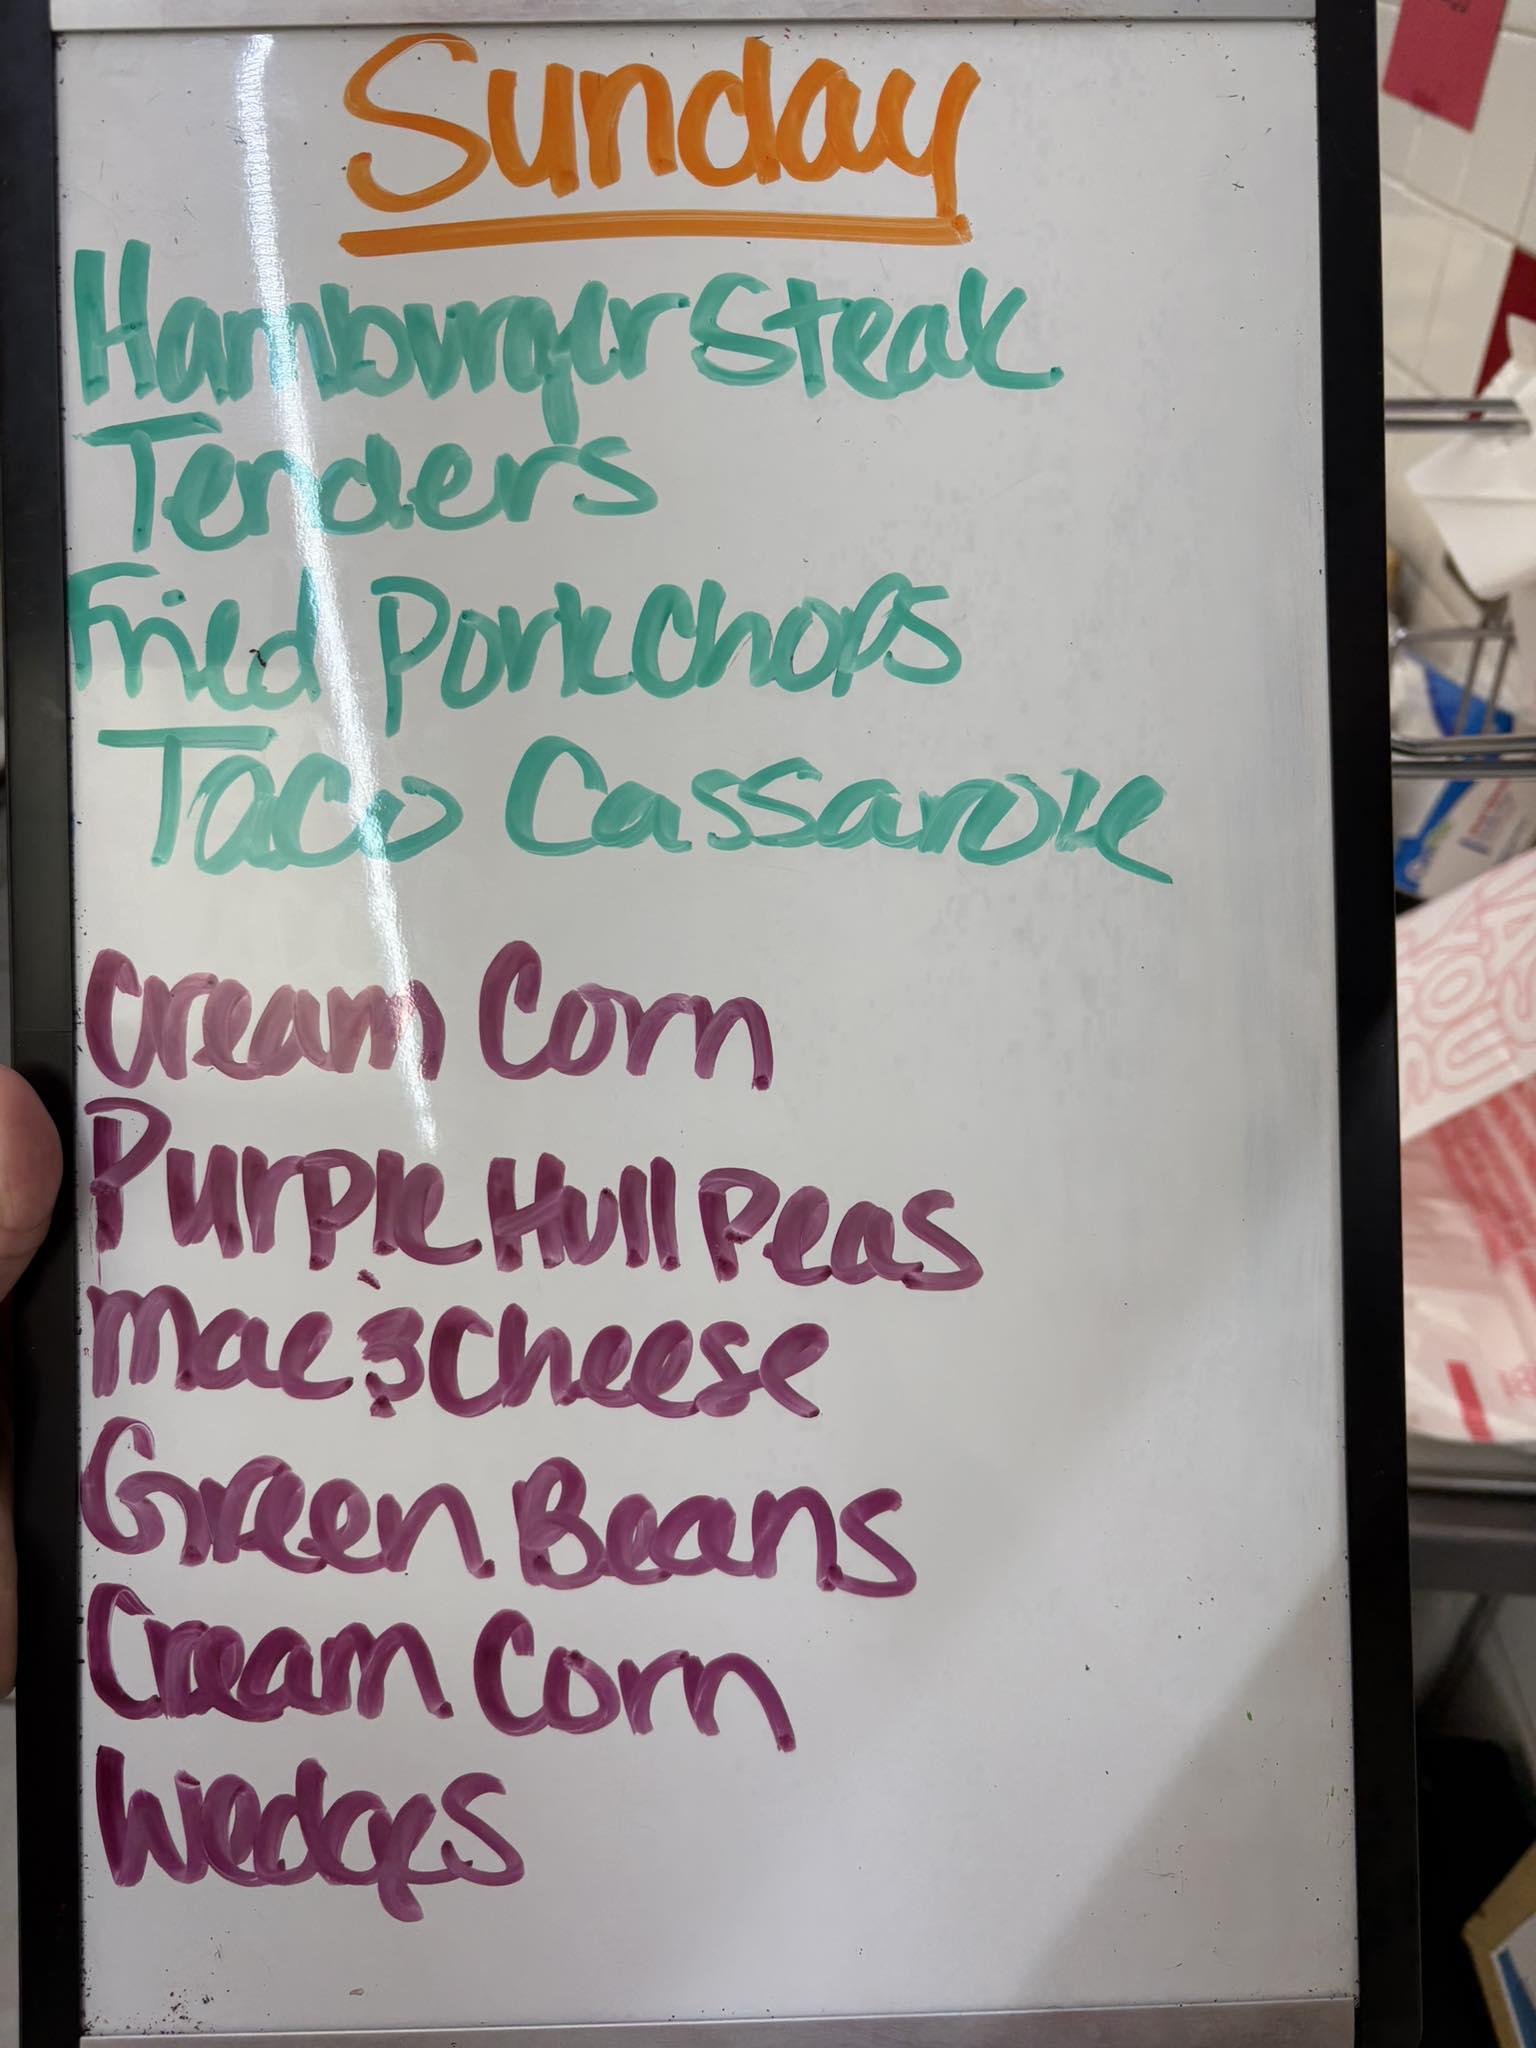 Sunday
Hamburger Steak
Tenders
Fried Pork Chops
Taco Cassarole
Cream Corn
Purple Hull Peas
Mac & Cheese
Green Beans
Cream Corn
Wedges
YOU